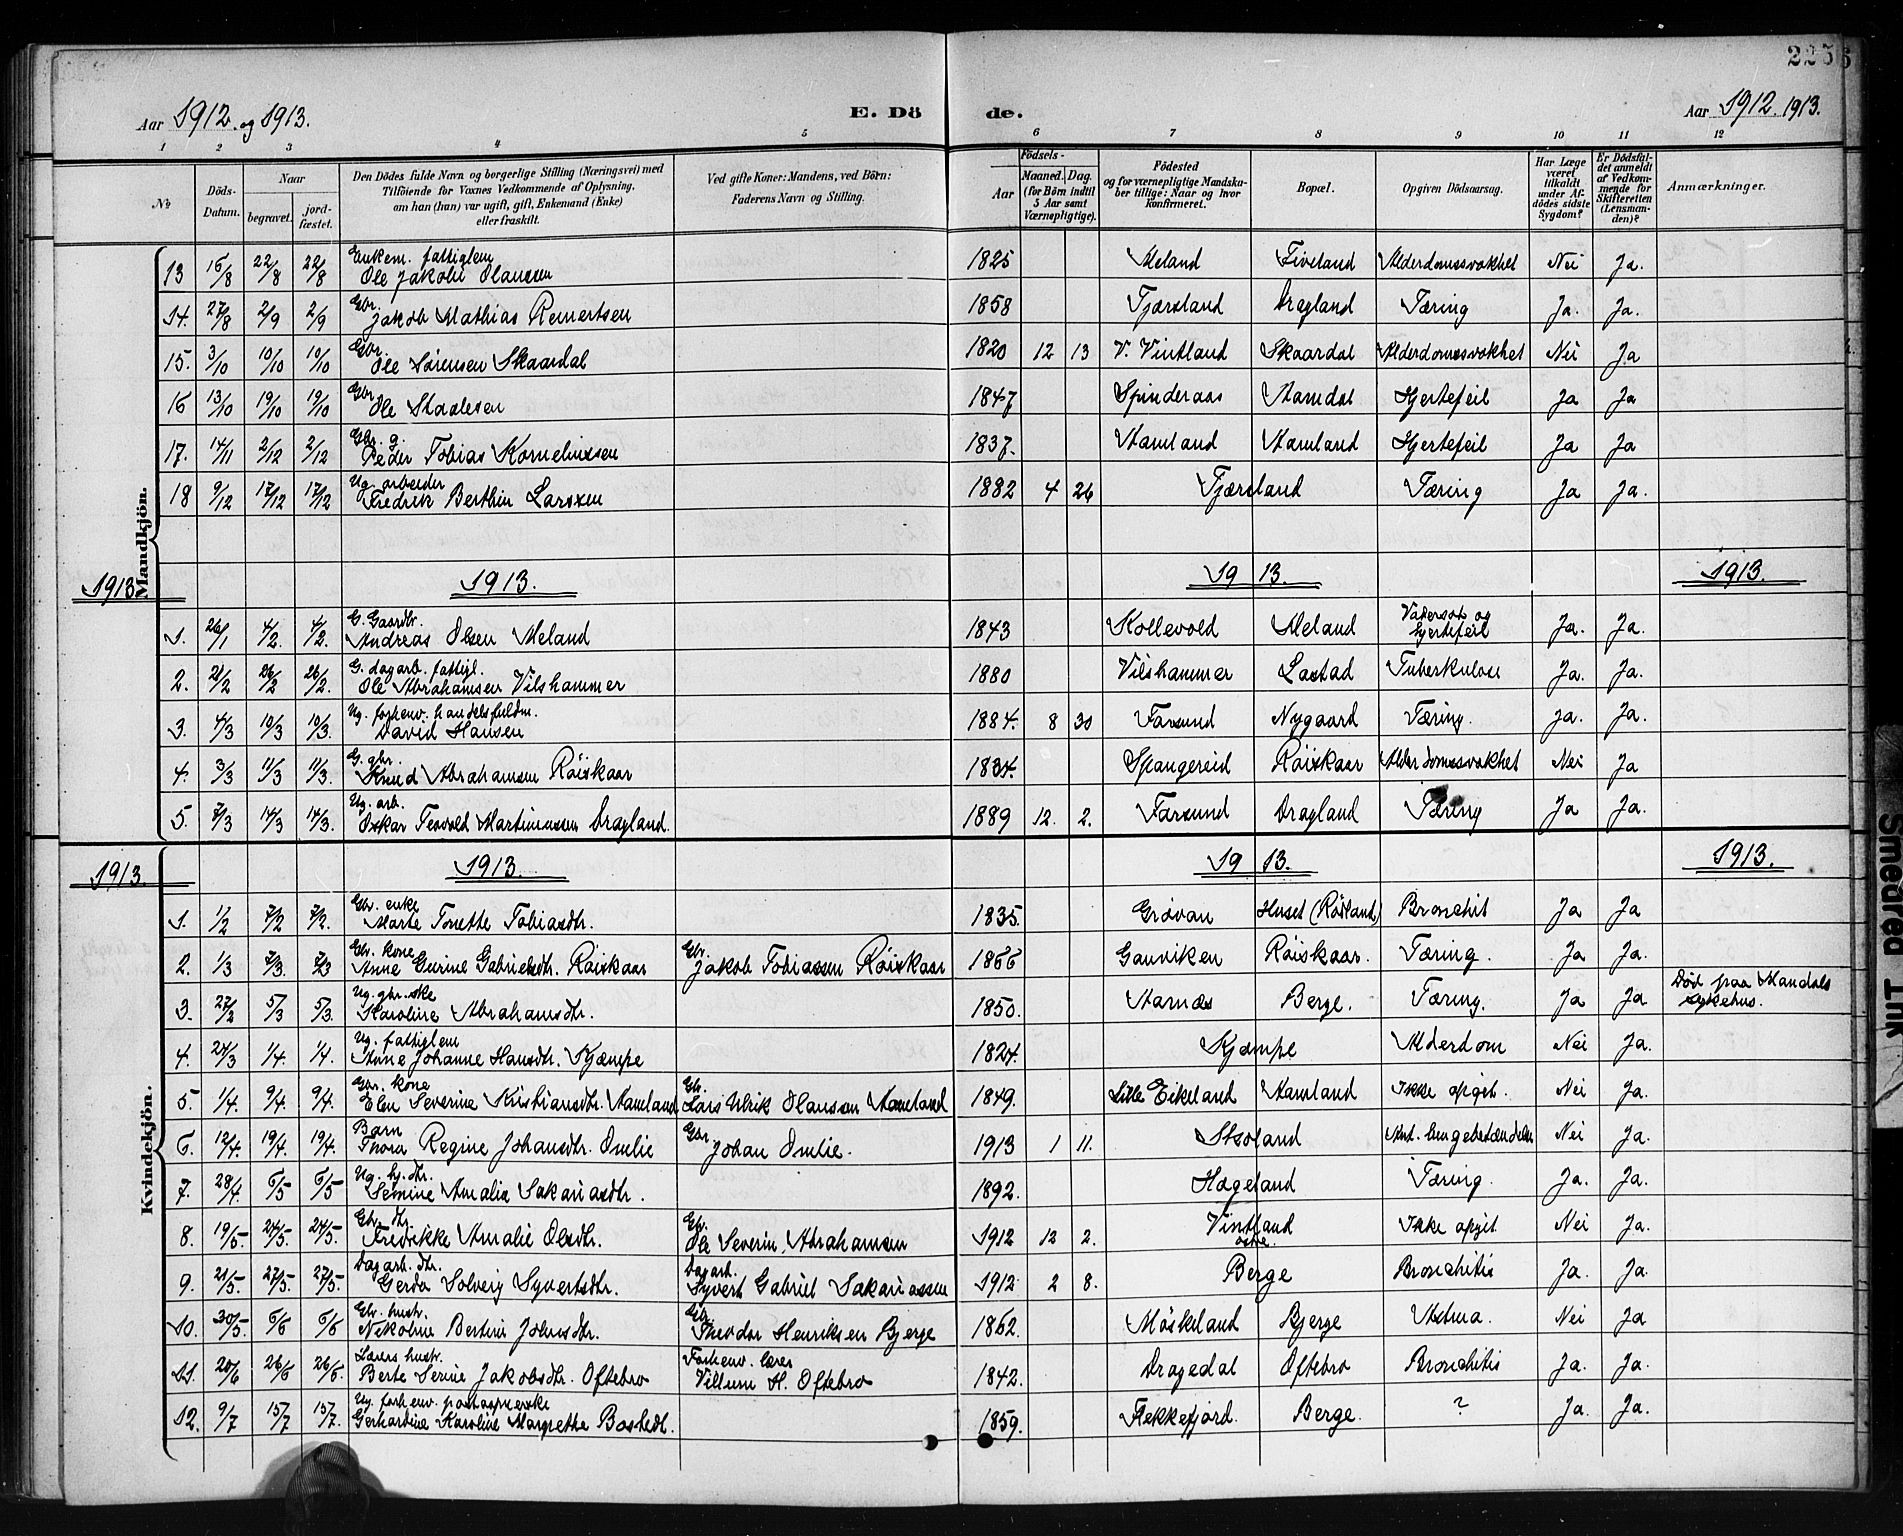 2256
Aar 1912 og 1913.
E. Dö de.
Aar 1912. 1913.
1 2 3 4 5 6 7 8 9 10 11 12
No
Döds-Datum.
Naar
begravet.
jordfæstet.
Den Dödes fulde Navn og borgerlige Stilling (Næringsvei) med
Tilföiende for Voxnes Vedkommende af Oplysning,
om han (hun) var ugift, gift, Enkemand (Enke)
eller fraskilt.
Ved gifte Koner: Mandens, ved Börn:
Faderens Navn og Stilling.
Födsels-
Aar
Maaned. Dag.
(for Börn indtil 5 Aar samt Værnepligtige).
Födested
og for værnepligtige Mandskaber tillige: Naar og hvor Konfirmeret.
Bopæl.
Opgiven Dödsaarsag.
Har Læge været tilkaldt under Afdödes sidste Sygdom?
Er Dödsfaldet anmeldt af Vedkommende for Skifteretten (Lensmanden)?
Anmærkninger.
Mandkjön.
13 15/8 22/8 22/8 Enkem. fattiglem Ole Jakob Olaussen 1825 Meland Fiveland Alderdomssvakhet Nei Ja.
14. 27/8 2/9 2/9 Gbr. Jakob Mathias Reinertsen 1858 Tjørsland Dragland Tæring Ja. Ja.
15. 3/10 10/10 10/10 Gbr. Ole Sörensen Skaardal 1820 12 13 V. Vintland Skaardal Alderdomssvakhet Nei Ja
16 13/10 19/10 19/10 Gbr. Ole Staalesen 1847 Spinderaas Aamdal Hjertefeil Ja Ja
17. 14/11 2/12 2/12 Gbr. g. Peder Tobias Korneliussen 1837. Aamland Aamland Hjertefeil Ja Ja
18 9/12 17/12 17/12 Ug. arbeider Fredrik Berthin Larssen 1882 4 26 Tjørsland Tæring Ja Ja.
1913 1913. 1913. 1913.
1. 26/1 4/2. 4/2. G. Gaardbr. Andreas Olsen Meland 1843 Kollevold Meland Vatersot og Hjertefeil Ja. Ja.
2. 21/2 26/2 26/2. G. dagarb. fattigl. Ole Abrahamsen Vilshammer 1880 Vilshammer Lastad Tuberkulose Ja. Ja.
3. 4/3 10/3 10/3. Ug. forhenv. handelsfuldm. David Hansen 1884. 8 30 Farsund Nygaard Tæring. Ja. Ja.
4. 3/3 11/3 11/3. G. gbr. Knud Abrahamsen Röiskaar 1834. Spangereid Röiskaar Alderdomssvakhet Nei Ja
5. 7/3 14/3 14/3. Ug. arb. Oskar Teovold Martinussen Dragland. 1889 12. 2. Farsund Dragland Tæring Ja Ja.
Kvindekjön.
1913. 1913. 1913. 1913.
1. 1/2 7/2 7/2. Gbr. enke Marte Tonette Tobiasdtr. 1835. Grövan Huset (Rösland) Bronchit Ja Ja
2. 1/3 7/3. 7/3 Gbr. kone Anne Gurine Gabrielsdtr. Röiskaar Gbr. Jakob Tobiassen Röiskaar 1866 Gauviken Röiskaar. Tæring. Ja Ja.
3. 27/2 5/3 5/3. Ug. gbr.ske Karoline Abrahamsdtr. 1850. Aarnes Berge. Tæring. Ja Ja Död paa Mandals sykehus.
4. 24/3 1/4. 1/4. Ug. fattiglem Anne Johanne Hansdtr. Kjæmpe 1824. Kjæmpe Alderdom Nei Ja.
5. 1/4. 9/4. 9/4. Gbr. kone Elen Severine Kristiansdtr. Aamland Gbr. Lars Ulrik Olausen Aamland 1849. Lille Eikeland Aamland Ikke opgit. Nei Ja.
6. 12/4. 19/4. 19/4. Barn Thora Regine Johansdtr. Omlie Gbr. Johan Omlie. 1913 1 11. Stsoland Ant. lungebetændelse Nei Ja.
7. 28/4. 6/5 6/5 Ug. Semine Amalie Sakariasdtr. 1892. Hageland Tæring. Ja. Ja.
8. 19/5. 24/5. 24/5. Gbr. dtr. Fredrikke Amalie Olsdtr. Gbr. Ole Severin Abrahamsen 1912 12 2. Vintland Ikke opgit Nei Ja.
9. 21/5. 27/5. 27/5. Dagarb. dtr. Gerda Solveig Syvertsdtr. Dagarb. Syvert Gabriel Sakariassen 1912 2 8. Berge Bronchitis Ja. Ja.
10. 30/5. 6/6 6/6 Gbr. hustr. Nikoline Bertine Johnsdtr. Gbr. Theodor Henriksen Bjerge 1862. Möskeland Bjerge Astma. Nei Ja
11. 20/6 26/6 26/6. Lærers hustr. Berte Serine Jakobsdtr. Oftebro Forhenv. lærer Villum H. Oftebro 1842. Dragedal Oftebro Bronchitis Ja. Ja.
12. 9/7 15/7 15/7. Ug. forhenv. Gerhardine Karoline Margrethe 1859. Flekkefjord. Berge. ? Ja. Ja.
Smeared Ink